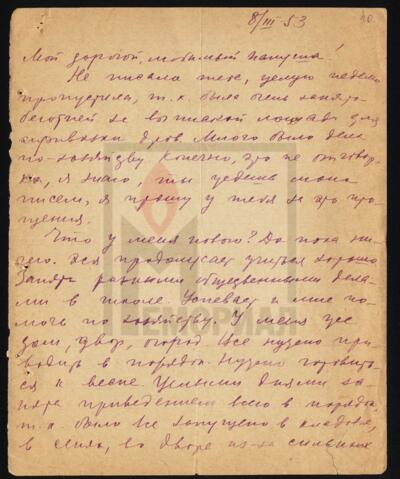 8/III 53
30.
Мой дорогой, любимый папуша!
Не писала тебе, целую неделю
пропустила, т.к. была очень занята
беготнёй за выпиской лошади для
привозки дров. Много было дела
по-хозяйству. Конечно, это не отговор-
ка, я знаю, ты ждёшь моих
писем, я прошу у тебя за это про-
щения.
Что у меня нового? Да пока ни-
чего. продолжает учиться хорошо
Занята разными общественными дела-
ми в школе. Успевает и мне по-
мочь по хозяйству. У меня уже
дом, двор, огород. Всё нужно при-
водить в порядок. Нужно готовить-
ся к весне. Целыми днями за-
нята приведением всего в порядок,
т.к. было всё запущено в кладовке,
в сенях, во дворе из-за сильных
МЕМОРИАЛ